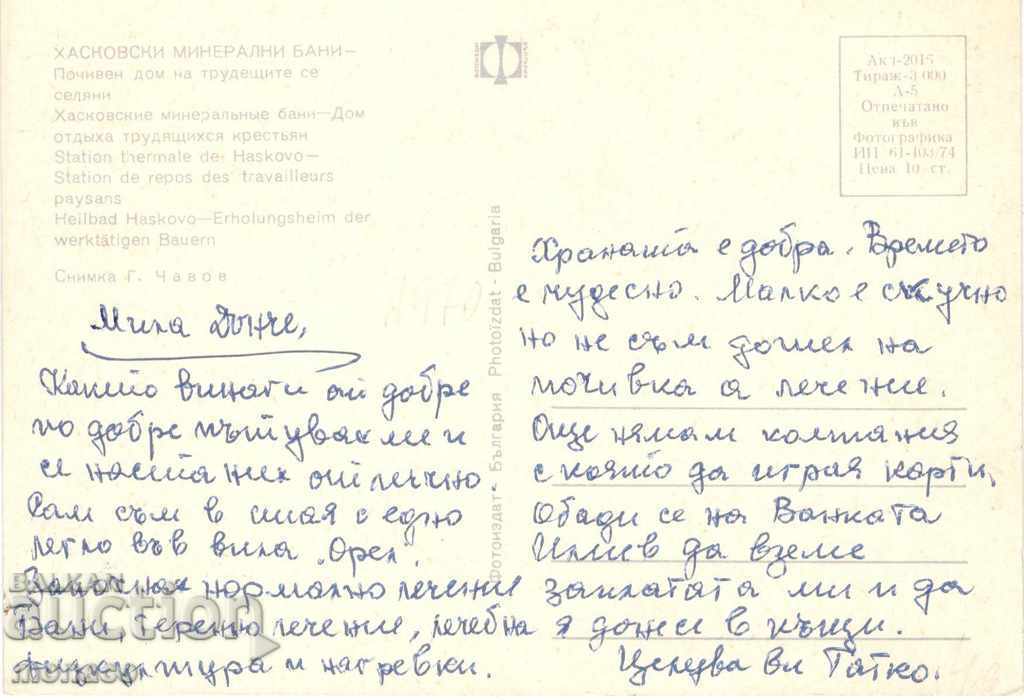 ХАСКОВСКИ МИНЕРАЛНИ БАНИ—
Почивен дом на трудещите се
селяни
Хасковские минеральные бани—Дом
отдыха трудящихся крестьян
Station thermale de Haskovo—
Station de repos des travailleurs
paysans
Heilbad Haskovo—Erholungsheim der
werktätigen Bauern
Снимка Г. Чавов
Мила Дънче,
Както винаги от добре
по добре пътувах ми и
се настаних отлично
Сам съм в стая с едно
легло във вила „Орел".
Започнах нормално лечение
Бани, терено лечение, лечебна
физкултура и нагревки.
Фотоиздат - България Photoizdat - Bulgaria
Акл-2015
Тираж-3 000
Д-5
Отпечатано
във
Фотографика
ИП 61-103/74
Цена 10 ст.
Храната е добра. Времето
е чудесно. Малко е скучно
но не съм дошел на
почивка а лечение.
Още нямам компания
с която да играя карти.
Обади се на Ванката
Илиев да вземе
заплатата ми и да
я донесе в къщи.
Целува ви Татко.
БАЛКАН
auction